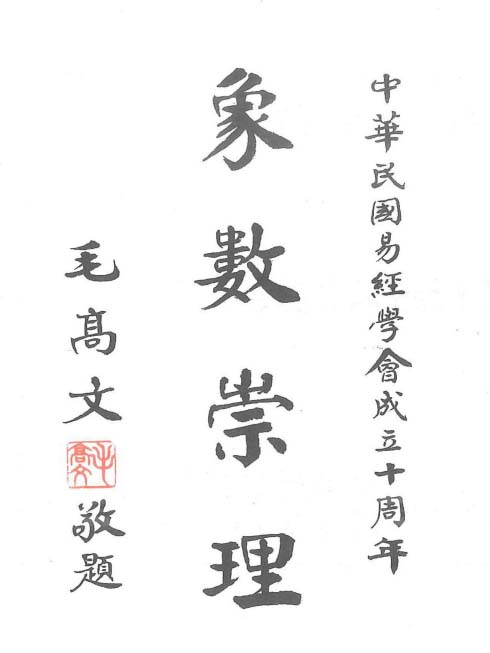 中華民國易經學會成立十周年
象數崇理
毛高文敬題